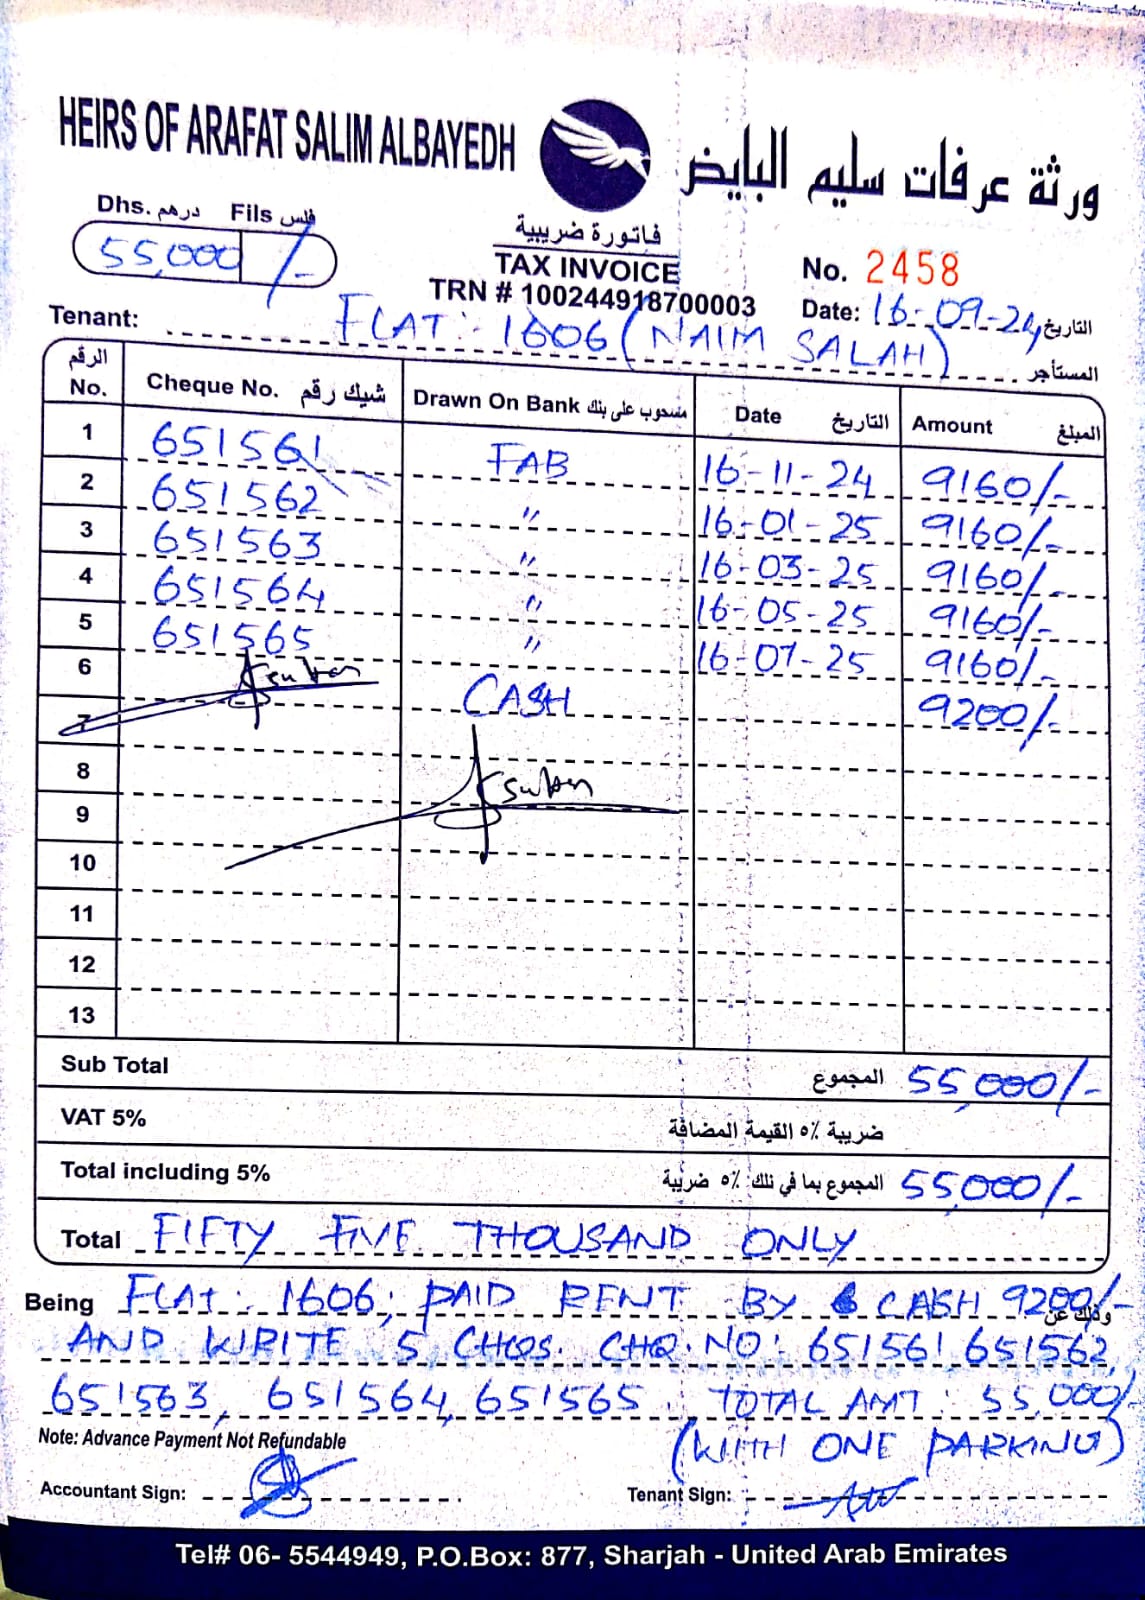 HEIRS OF ARAFAT SALIM ALBAYEDH
ورثة عرفات سليم البايض
Dhs. درهم Fils فلس
55,000 /-
فاتورة ضريبية
TAX INVOICE
TRN # 100244918700003
No. 2458
Date: 16-09-24 التاريخ
Tenant: FLAT:- 1606 (NAIM SALAH) المستأجر
الرقم No. Cheque No. شيك رقم Drawn On Bank مسحوب على بنك Date التاريخ Amount المبلغ
1 651561 FAB 16-11-24 9160/-
2 651562 " 16-01-25 9160/-
3 651563 " 16-03-25 9160/-
4 651564 " 16-05-25 9160/-
5 651565 " 16-07-25 9160/-
6 CASH 9200/-
7
8
9
10
11
12
13
Sub Total المجموع 55,000/-
VAT 5% ضريبة ٥٪ القيمة المضافة
Total including 5% المجموع بما في ذلك ٥٪ ضريبة 55,000/-
Total FIFTY FIVE THOUSAND ONLY
Being FLAT: 1606, PAID RENT BY CASH 9200/- وذلك عن
AND WRITE 5 CHQS. CHQ.NO: 651561, 651562,
651563, 651564, 651565. TOTAL AMT: 55,000/-
Note: Advance Payment Not Refundable
(WITH ONE PARKING)
Accountant Sign:
Tenant Sign:
Tel# 06- 5544949, P.O.Box: 877, Sharjah - United Arab Emirates